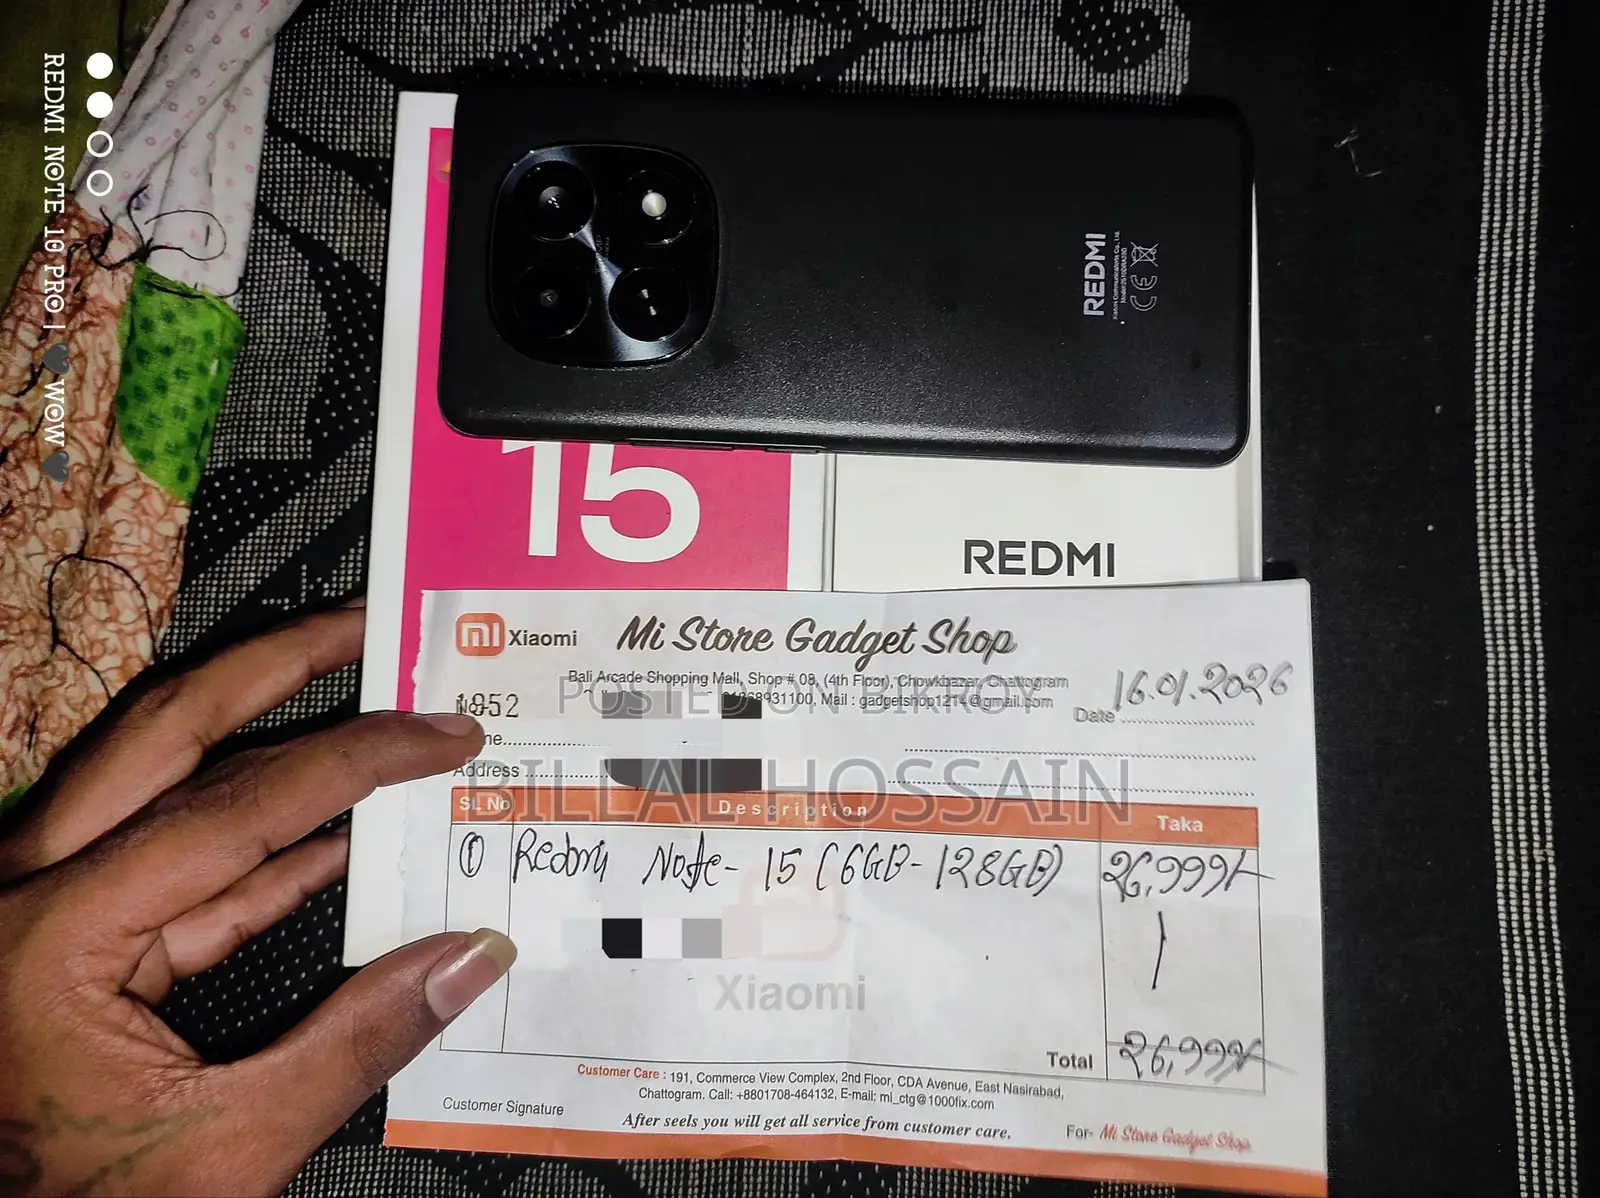 REDMI NOTE 10 PRO | 🖤 WOW 🖤
REDMI
Xiaomi Communications Co., Ltd.
CE
15
REDMI
mi Xiaomi
Mi Store Gadget Shop
Bali Arcade Shopping Mall, Shop # 08, (4th Floor), Chowkbazar, Chattogram
931100, Mail : gadgetshop1214@gmail.com
1952
Date 16.01.2026
POSTED ON BIKROY
Address
BILLAL HOSSAIN
SL No Description Taka
1 Redmi Note- 15 (6GB-128GB) 26,999/-
Xiaomi
Total 26,999/-
Customer Care : 191, Commerce View Complex, 2nd Floor, CDA Avenue, East Nasirabad,
Chattogram. Call: +8801708-464132, E-mail: mi_ctg@1000fix.com
Customer Signature
After seels you will get all service from customer care.
For- Mi Store Gadget Shop